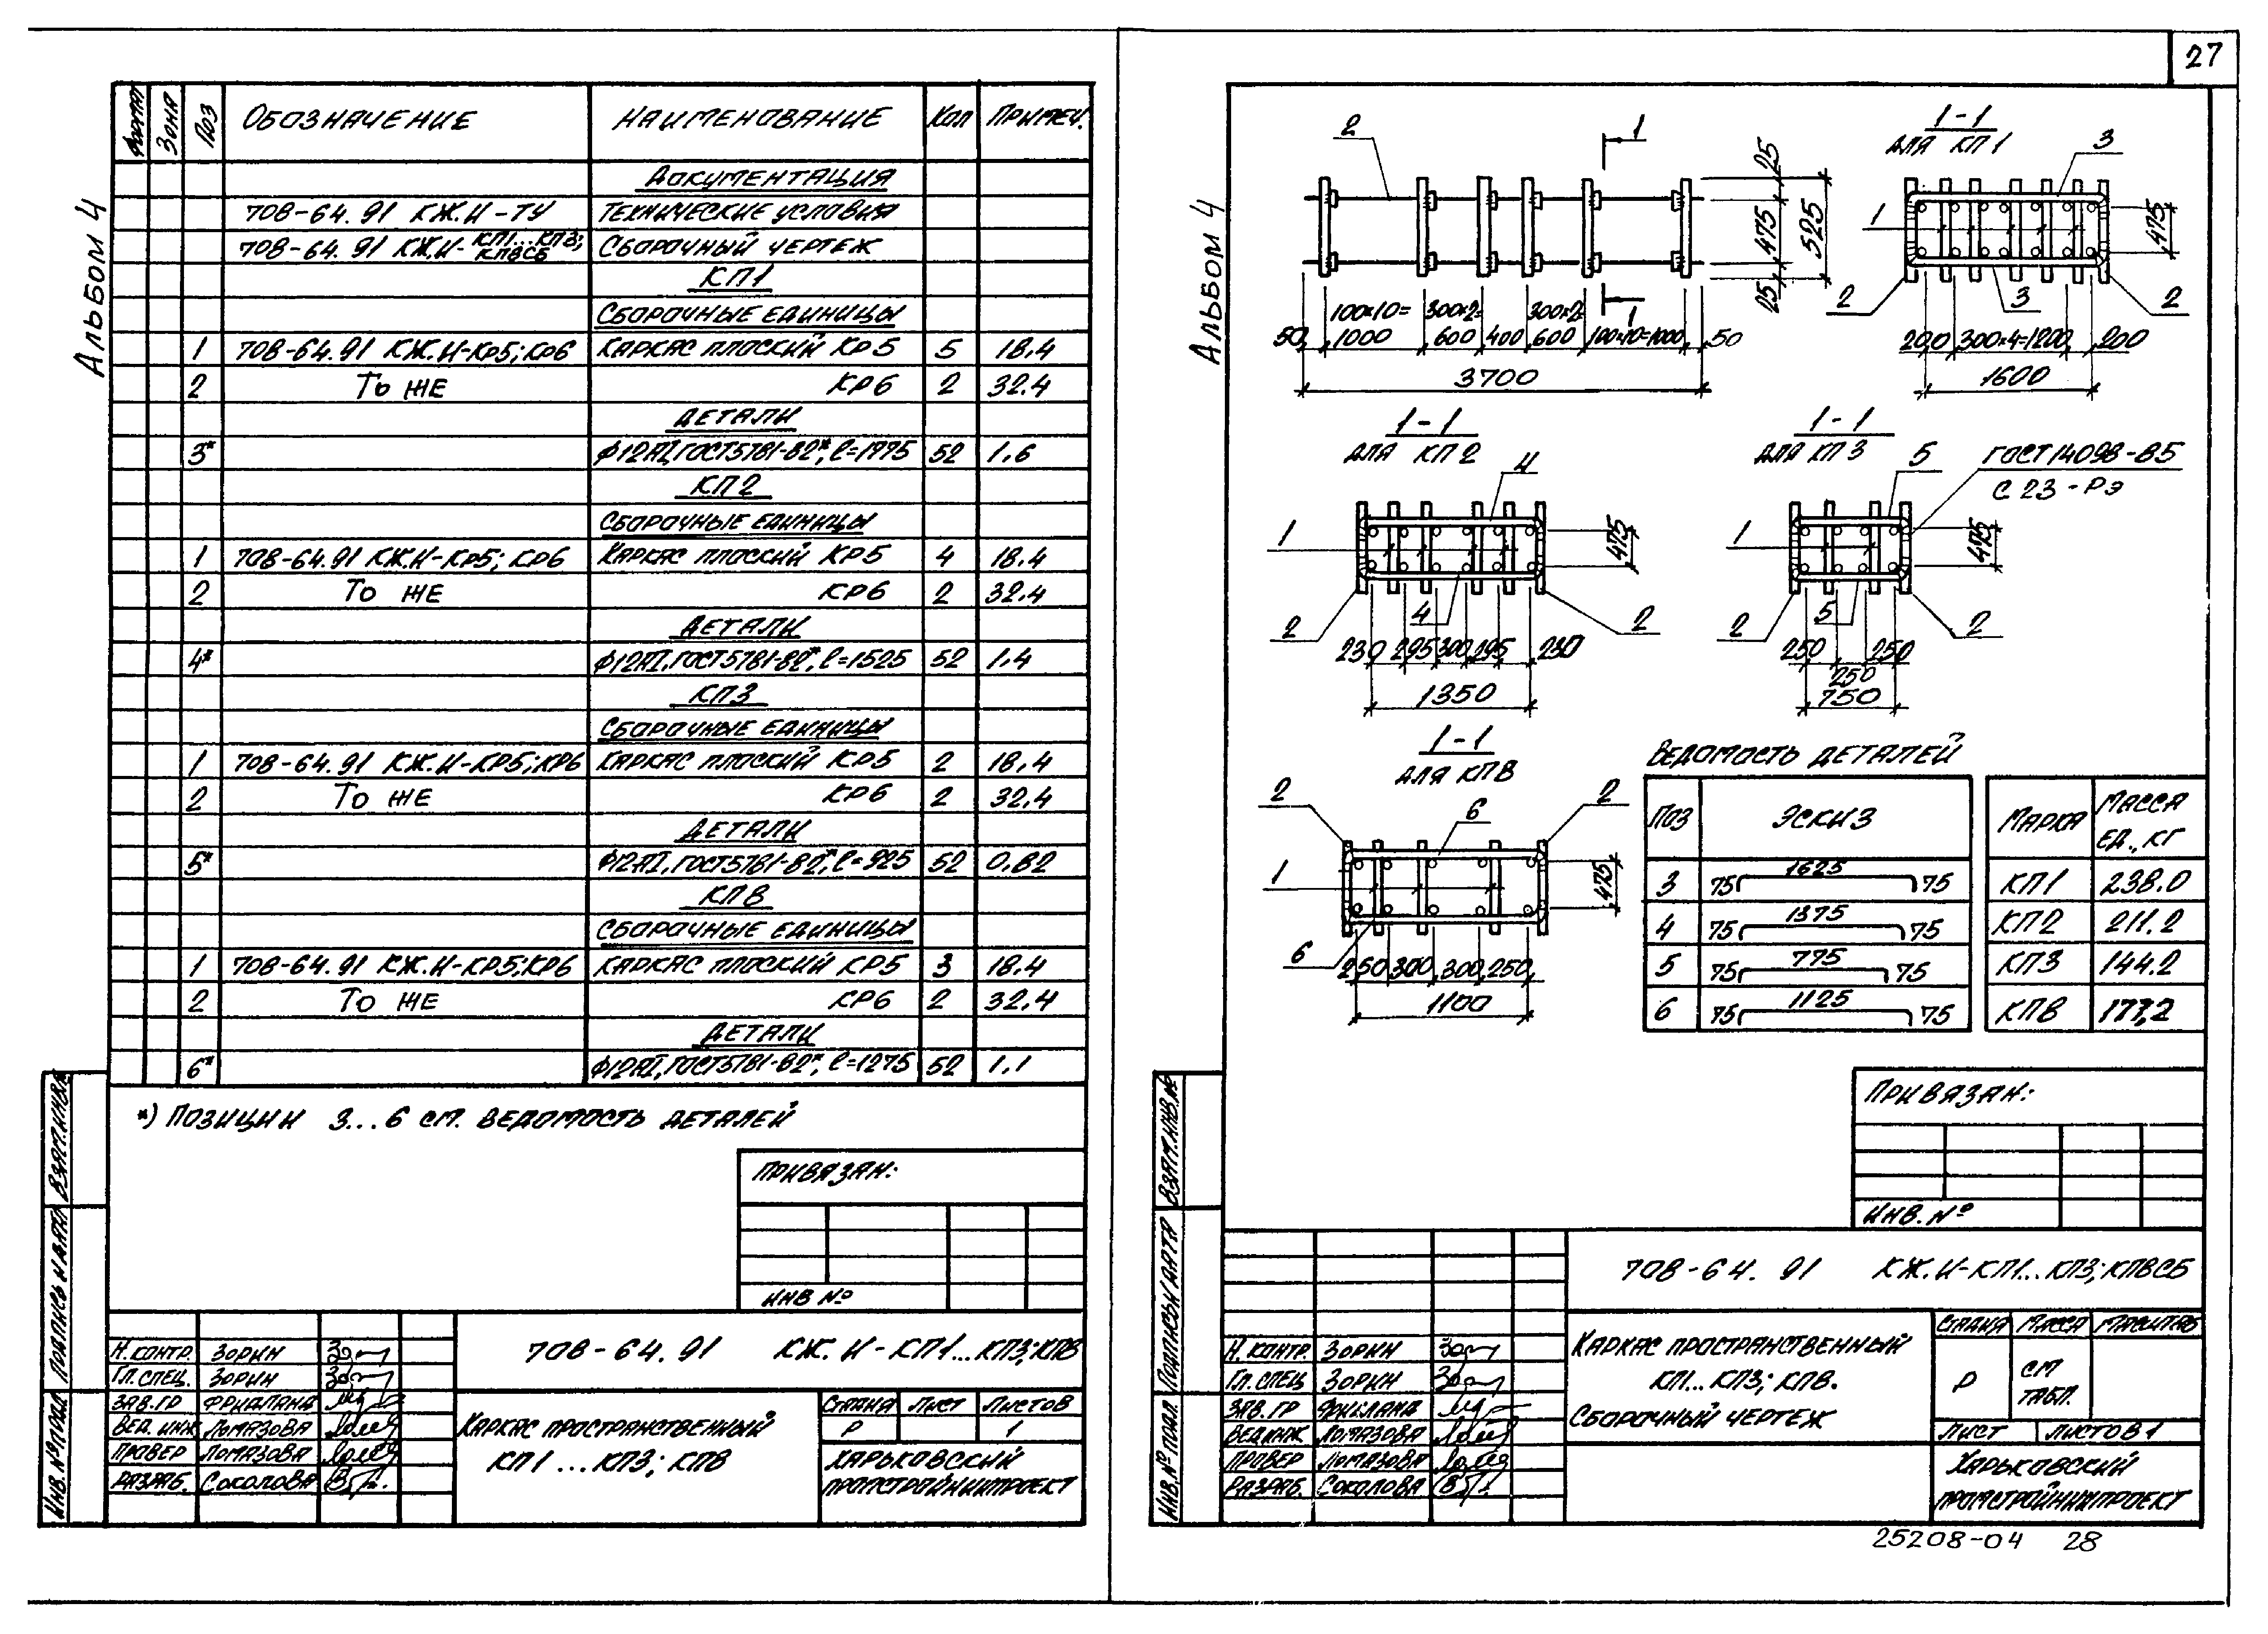 27
Альбом 4
Формат Зона Поз Обозначение Наименование Кол Примеч.
Документация
708-64.91 КЖ.И-ТУ Технические условия
708-64.91 КЖ.И-КП1...КП3; КП8СБ Сборочный чертеж
КП1
Сборочные единицы
1 708-64.91 КЖ.И-Кр5; Кр6 Каркас плоский Кр5 5 18.4
2 То же КР6 2 32.4
Детали
3* ф12АI, ГОСТ 5781-82*, ℓ=1775 52 1.6
КП2
Сборочные единицы
1 708-64.91 КЖ.И-Кр5; КР6 Каркас плоский КР5 4 18.4
2 То же КР6 2 32.4
Детали
4* ф12АI, ГОСТ 5781-82*, ℓ=1525 52 1.4
КП3
Сборочные единицы
1 708-64.91 КЖ.И-КР5; КР6 Каркас плоский КР5 2 18.4
2 То же КР6 2 32.4
Детали
5* ф12АI, ГОСТ 5781-82*, ℓ=925 52 0.82
КП8
Сборочные единицы
1 708-64.91 КЖ.И-КР5; КР6 Каркас плоский КР5 3 18.4
2 То же КР6 2 32.4
Детали
6* ф12АI, ГОСТ 5781-82*, ℓ=1275 52 1.1
*) Позиции 3...6 см. ведомость деталей
Привязан:
Инв №
Взам. инв. №
Подпись и дата
Инв. № подл.
Н. контр. Зорин
Гл. спец. Зорин
Зав. гр Фридлянд
Вед. инж Ломазова
Провер Ломазова
Разраб. Соколова
708-64.91 КЖ.И-КП1...КП3; КП8
Каркас пространственный
КП1...КП3; КП8
Стадия Лист Листов
Р 1
Харьковский
Промстройниипроект
Альбом 4
2
1
1
25
475
25
525
50 100х10=1000 300х2=600 400 300х2=600 100х10=1000 50
3700
1-1
для КП1
3
1
475
2 3 2
200 300х4=1200 200
1600
1-1
для КП2
4
1
475
2 4 2
230 295 300 295 230
1350
1-1
для КП3
5
ГОСТ 14098-85
С 23-Рэ
1
475
2 5 2
250 250 250
750
1-1
для КП8
2 6 2
1
475
6
250 300 300 250
1100
Ведомость деталей
Поз Эскиз
3 75 1625 75
4 75 1375 75
5 75 775 75
6 75 1125 75
Марка Масса ед., кг
КП1 238.0
КП2 211.2
КП3 144.2
КП8 177,2
Привязан:
Инв. №
Взам. инв. №
Подпись и дата
Инв. № подл.
708-64.91 КЖ.И-КП1...КП3; КП8СБ
Н. контр. Зорин
Гл. спец Зорин
Зав. гр Фридлянд
Вед. инж Ломазова
Провер Ломазова
Разраб. Соколова
Каркас пространственный
КП1...КП3; КП8.
Сборочный чертеж
Стадия Масса Масштаб
Р см табл.
Лист Листов 1
Харьковский
Промстройниипроект
25208-04 28